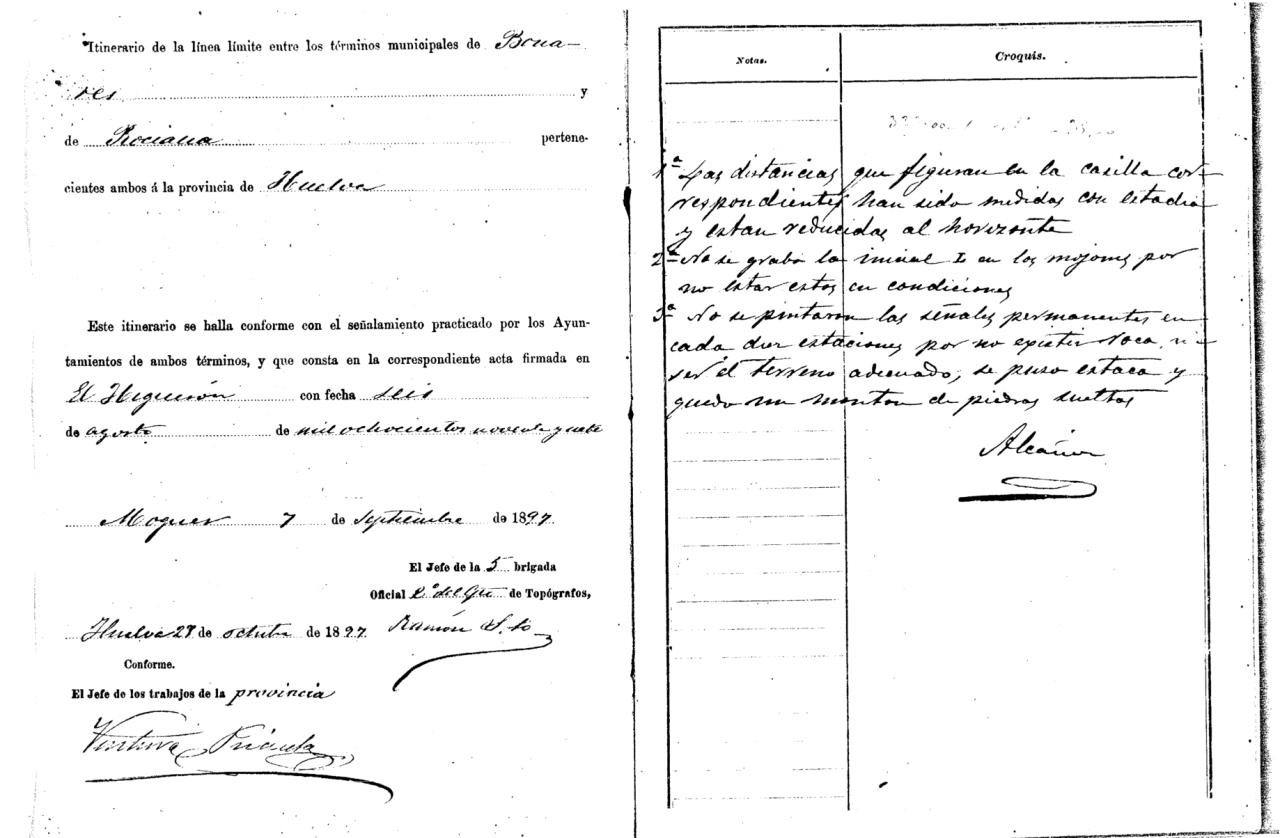 Itinerario de la línea límite entre los términos municipales de Bona-
res y
de Rociana pertene-
cientes ambos á la provincia de Huelva
Este itinerario se halla conforme con el señalamiento practicado por los Ayun-
tamientos de ambos términos, y que consta en la correspondiente acta firmada en
El con fecha seis
de agosto de mil ochocientos noventa y siete
Moguer 7 de Septiembre de 1897.
El Jefe de la 5 brigada
Oficial 2.º del de Topógrafos,
Huelva 27 de octubre de 1897.
Ramón
Conforme.
El Jefe de los trabajos de la provincia
Ventura
Notas. Croquis.
1ª Las distancias que figuran en la casilla cor-
respondientes han sido medidas con estadia
y estan reducidas al horizonte
2ª No se grabó la inicial I en los mojones por
no estar estos en condiciones
3ª No se pintaron las señales permanentes en
cada diez estaciones por no existir roca, ni
ser el terreno adecuado, se puso estaca y
quedo un monton de piedras sueltas